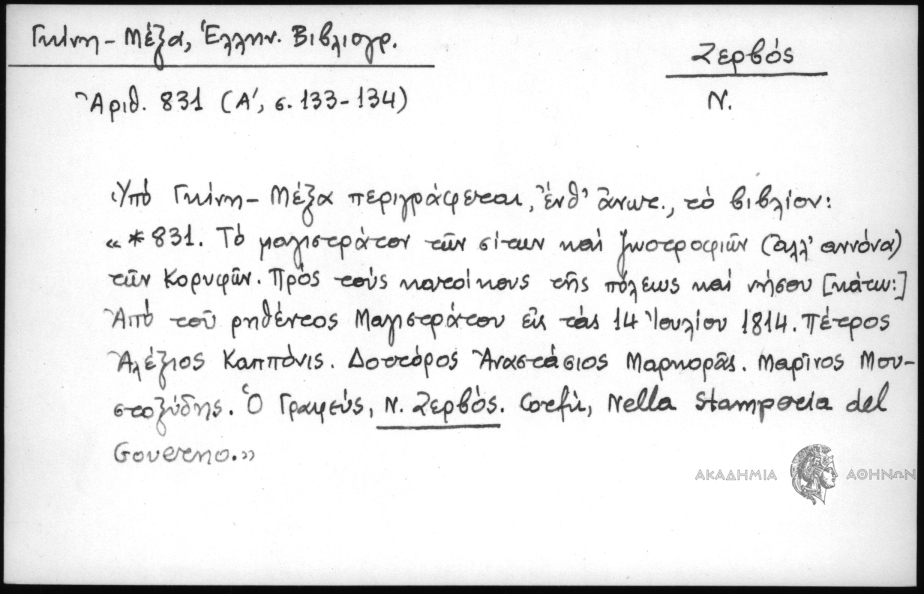 Γκίνη - Μέξα, Ἑλλην. Βιβλιογρ.
Ζερβός
Ν.
Ἀριθ. 831 (Α΄, σ. 133-134)
Ὑπό Γκίνη - Μέξα περιγράφεται, ἔνθ' ἄνωτ., τό βιβλίον:
«*831. Τό μαγιστράτον τῶν σίτων καί ζωοτροφιῶν (ἀλλ' ἀννόνα)
τῶν Κορυφῶν. Πρός τούς κατοίκους τῆς πόλεως καί νήσου [κάτω:]
Ἀπό τοῦ ρηθέντος Μαγιστράτου εἰς τάς 14 Ἰουλίου 1814. Πέτρος
Ἀλέξιος Καππόνις. Δοττόρος Ἀναστάσιος Μαρκορᾶς. Μαρῖνος Μου-
στοξύδης. Ὁ Γραφεύς, Ν. Ζερβός. Corfù, Nella Stamperia del
Governo.»
ΑΚΑΔΗΜΙΑ ΑΘΗΝΩΝ